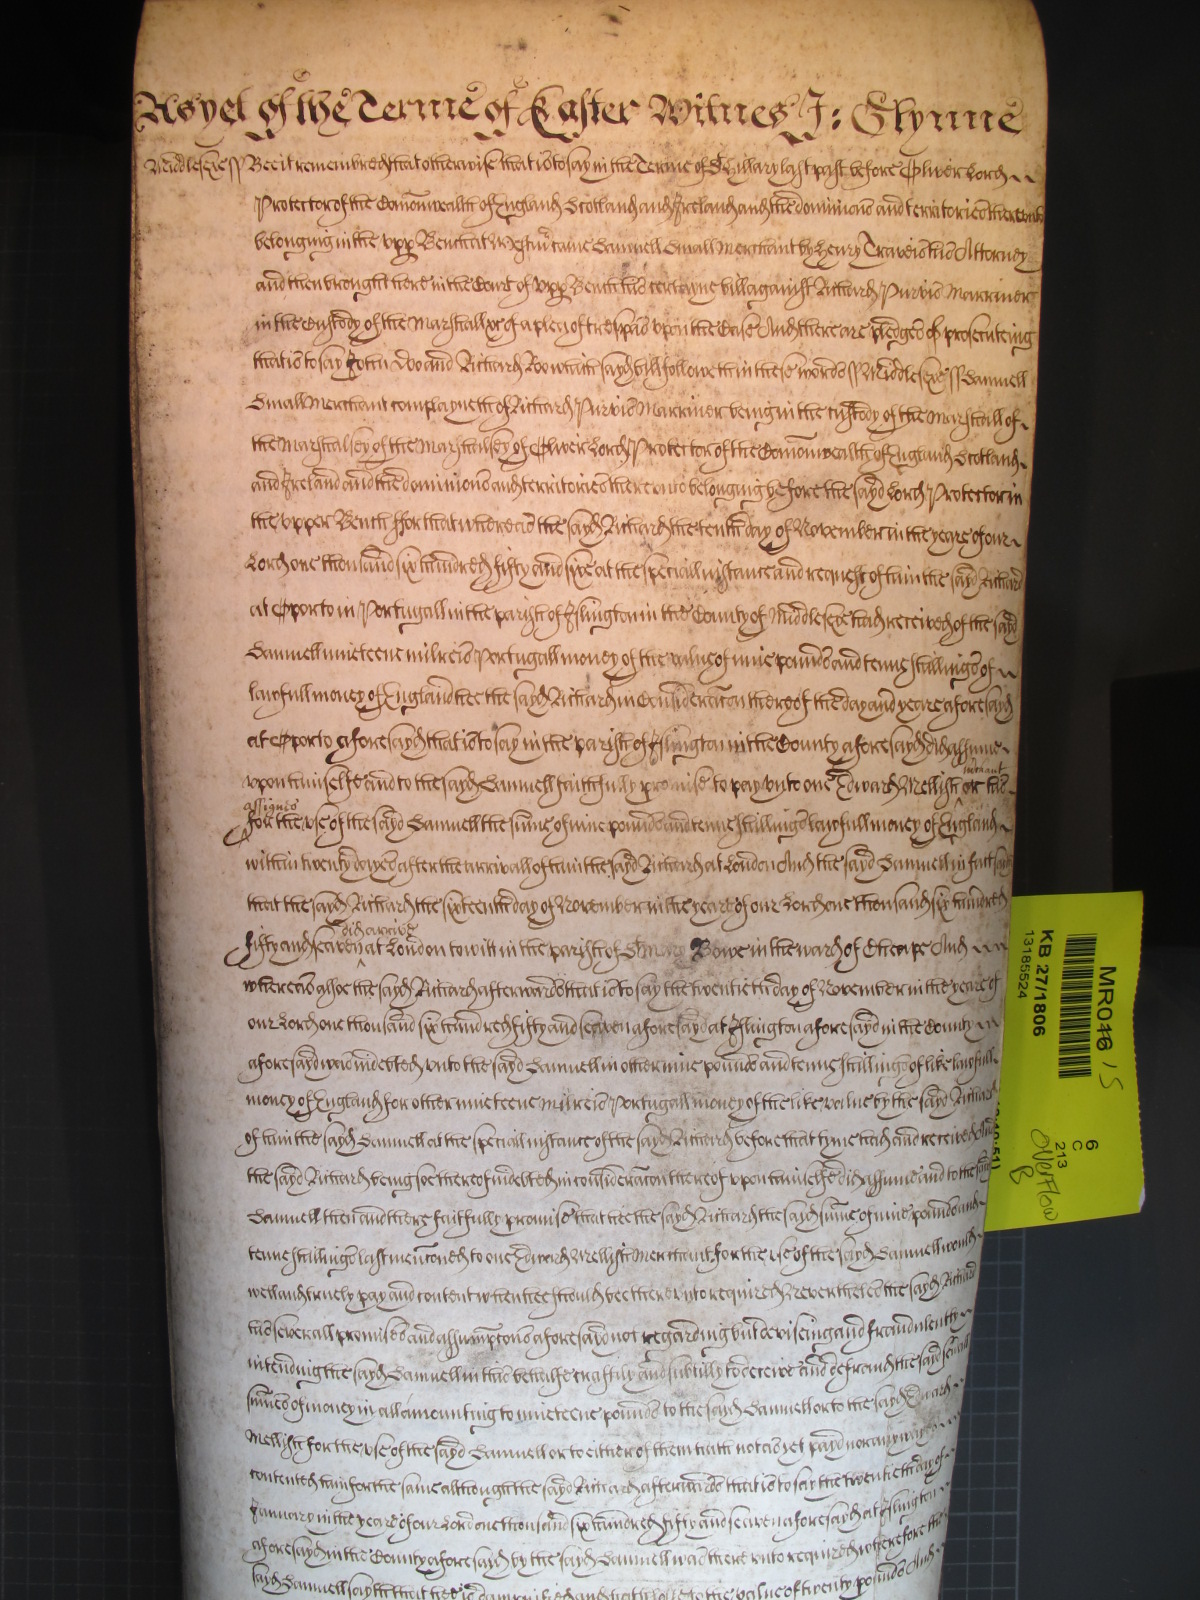 As yet of the Terme of Easter Witnes J: Glynne
Middlesex ss Be it remembred that otherwise that is to say in the Terme of St Hillary last past before Oliver Lord
Protector of the Comonwealth of England Scotland and Ireland and the dominions and territories thereunto
belonging in the upp Bench at Westmr came Samuell Small Merchant by Henry Travers his Attorney
and then brought here in the Court of upp Bench his certayne bill against Richard Purvis Marriner
in the Custody of the Marshall &c of a plea of trespas upon the Case And there are pledges of prosecuteing
that is to say John Doo and Richard Roo which sayd bill followeth in these words ss Middlesex ss Samuell
Small Merchant complayneth of Richard Purvis Marriner being in the custody of the Marshall of
the Marshalsey of the Marshalsey of Oliver Lord Protector of the Comonwealth of England Scotland
and Ireland and the dominions and territories thereunto belonging before the sayd Lord Protector in
the upper Bench ffor that whereas the sayd Richard the tenth day of November in the yeare of our
Lord one thousand six hundred fifty and sixe at the speciall instance and request of him the sayd Richard
at Oporto in Portugall in the parish of Islington in the County of Middlesex had received of the sayd
Samuell nineteene milreis Portugall money of the value of nine pounds and tenne shillings of
lawfull money of England hee the sayd Richard in Consideracon thereof the day and yeare aforesayd
at Oporto aforesayd that is to say in the parish of Islington in the County aforesayd did assume
upon himselfe and to the sayd Samuell faithfully promise to pay unto one Edward Mellish mchant or his
assignes
for the use of the sayd Samuell the sume of nine pounds and tenne shillings lawfull money of England
within twenty dayes after the arrivall of him the sayd Richard at London And the sayd Samuell in fact sayth
that the sayd Richard the sixteenth day of November in the yeare of our Lord one thousand six hundred
fifty and seaven did arrive at London to wit in the parish of St Mary Bowe in the ward of Cheape And
whereas alsoe the sayd Richard afterwards that is to say the twentieth day of November in the yeare of
our Lord one thousand six hundred fifty and seaven aforesayd at Islington aforesayd in the County
aforesayd was indebted unto the sayd Samuell in other nine pounds and tenne shillings of like lawfull
money of England for other nineteene milreis Portugall money of the like value by the sayd Richard
of him the sayd Samuell at the speciall instance of the sayd Richard before that tyme had and received And
the sayd Richard being soe thereof indebted in consideracon thereof upon himselfe did assume and to the sayd
Samuell then and there faithfully promise that hee the sayd Richard the sayd sume of nine pounds and
tenne shillings last menconed to one Edward Mellish Merchant for the use of the sayd Samuell would
well and truely pay and content when hee should bee thereunto required Neverthelesse the sayd Richard
his severall promises and assumptons aforesayd not regarding but deviseing and fraudulently
intending the sayd Samuell in this behalfe craftily and subtilly to deceive and defraud the sayd severall
sumes of money in all amounting to nineteene pounds to the sayd Samuell or to the sayd Edward
Mellish for the use of the sayd Samuell or to either of them hath not as yet payd nor any wayes
contented him for the same although the sayd Richard afterwards that is to say the twentieth day of
January in the yeare of our Lord one thousand six hundred fifty and seaven aforesayd at Islington
aforesayd in the County aforesayd by the sayd Samuell was thereunto required wherefore the
sayd Samuell sayth that hee is damnified and hath losse to the value of twenty pounds And
MR048 15
KB 27/1806
13185524
6
C
213
Overflow
B